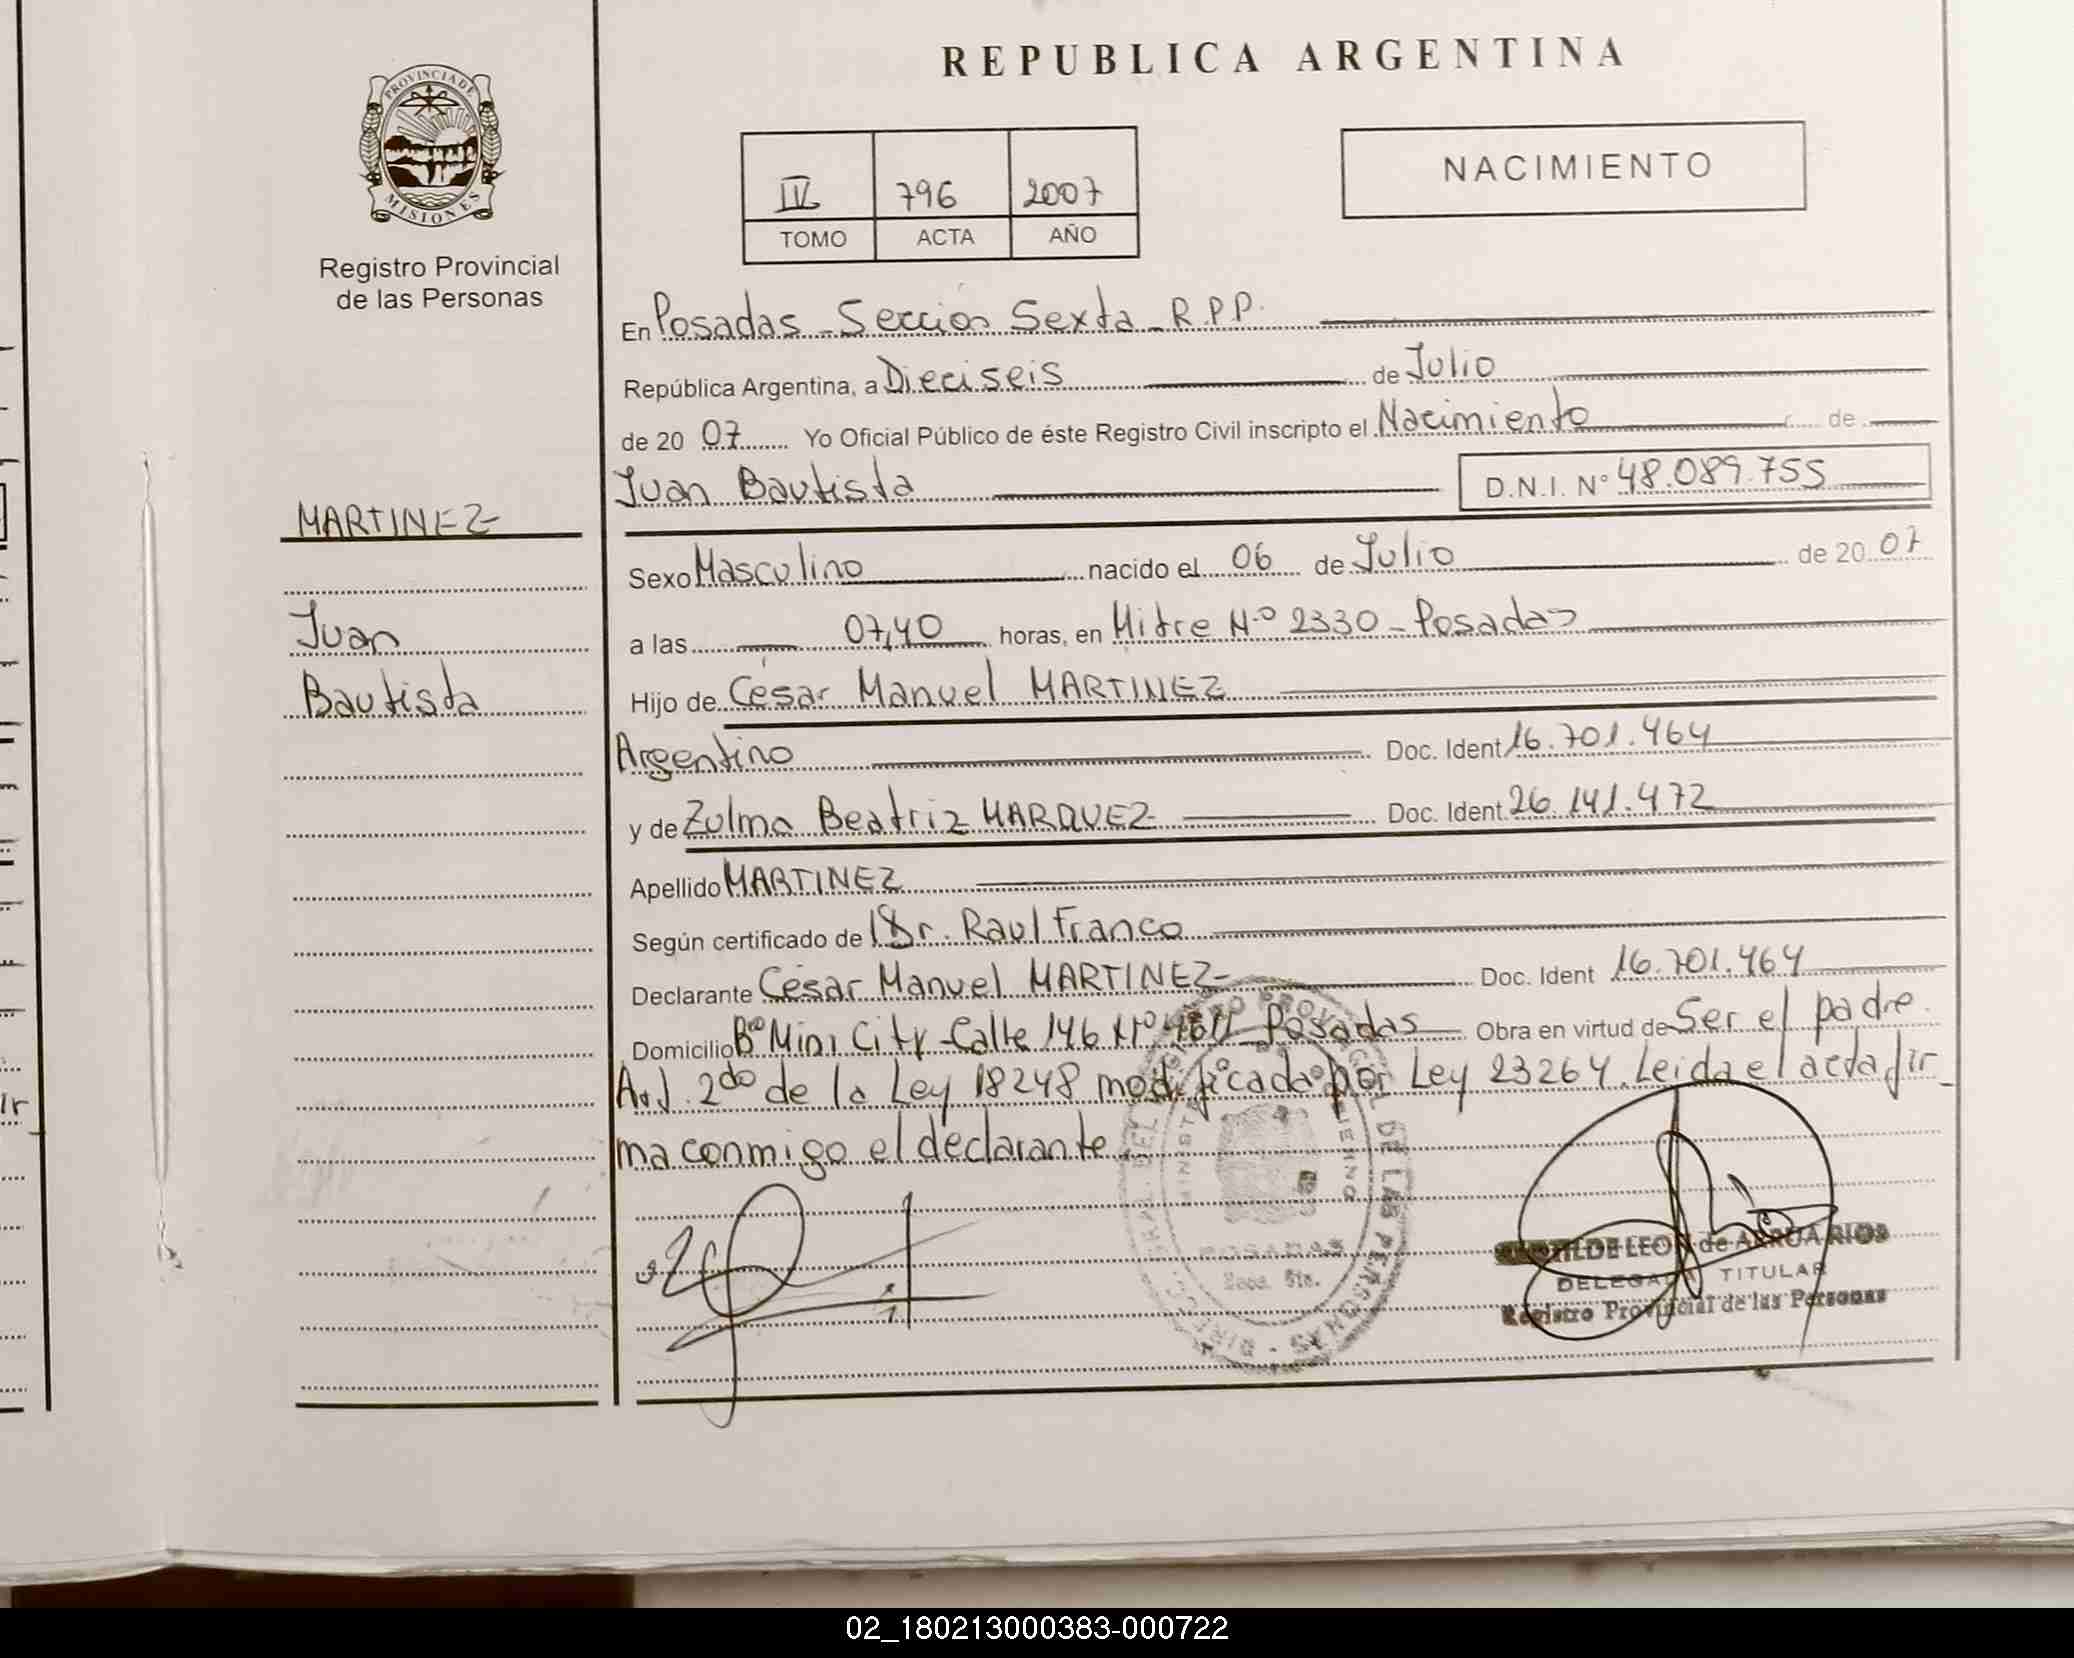 REPUBLICA ARGENTINA
PROVINCIA DE
MISIONES
Registro Provincial
de las Personas
IV 796 2007
TOMO ACTA AÑO
NACIMIENTO
En Posadas - Sección Sexta - R.P.P.
República Argentina, a Dieciseis de Julio
de 20 07 Yo Oficial Público de éste Registro Civil inscripto el Nacimiento de
Juan Bautista D.N.I. N° 48.089.755
MARTINEZ
Juan
Bautista
Sexo Masculino nacido el 06 de Julio de 20 07
a las 07,40 horas, en Mitre Nº 2330 - Posadas
Hijo de César Manuel MARTINEZ
Argentino Doc. Ident 16.701.464
y de Zulma Beatriz MARQUEZ Doc. Ident. 26.141.472
Apellido MARTINEZ
Según certificado de Dr. Raul Franco
Declarante César Manuel MARTINEZ Doc. Ident 16.701.464
Domicilio Bº Mini City - Calle 146 Nº Posadas Obra en virtud de Ser el padre.
Art. 2do de la Ley 18248 modificada por Ley 23264. Leida el acta fir-
ma conmigo el declarante.
LEON de ARRUA RIOS
DELEGADA TITULAR
Registro Provincial de las Personas
POSADAS
Secc. 6ta.
ir
02_180213000383-000722